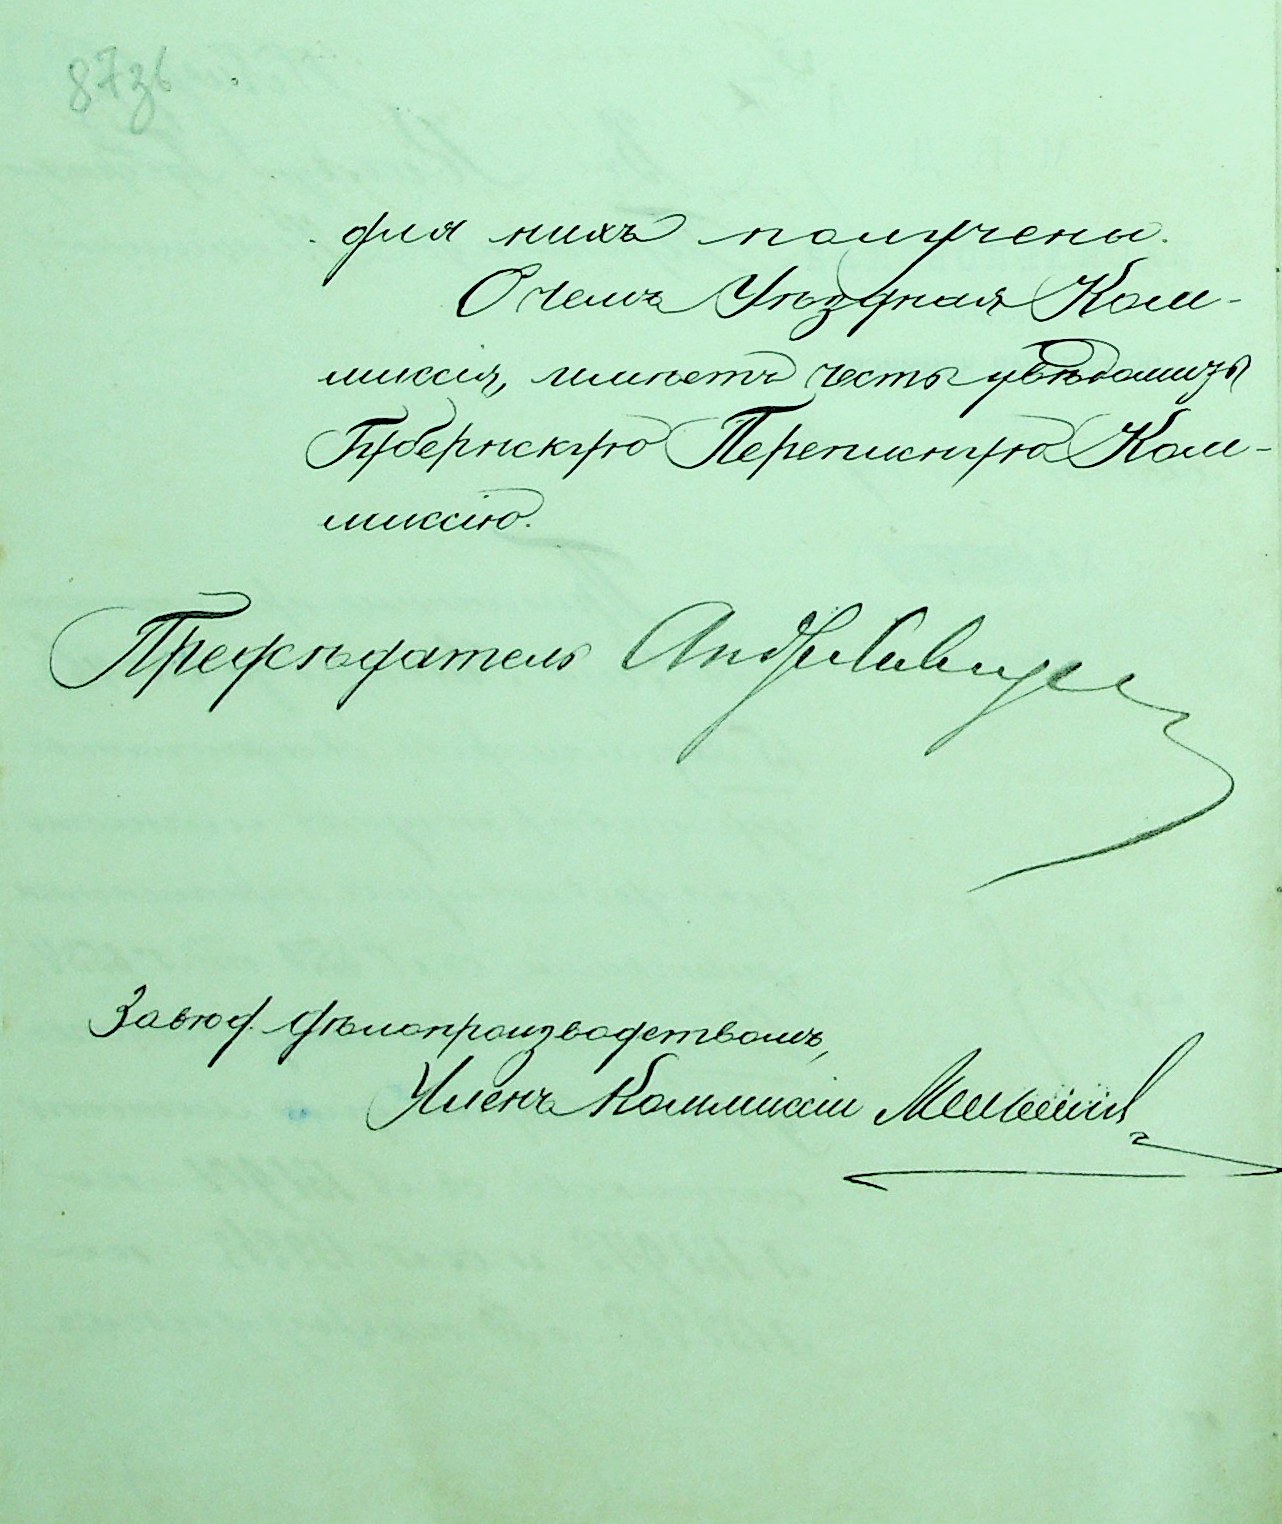 для нихъ получены.
О чемъ Уѣздная Ком-
миссія, имѣетъ честь увѣдомить
Губернскую Переписную Ком-
миссію.
Предсѣдатель
Завѣд. дѣлопроизводствомъ,
Членъ Коммиссіи